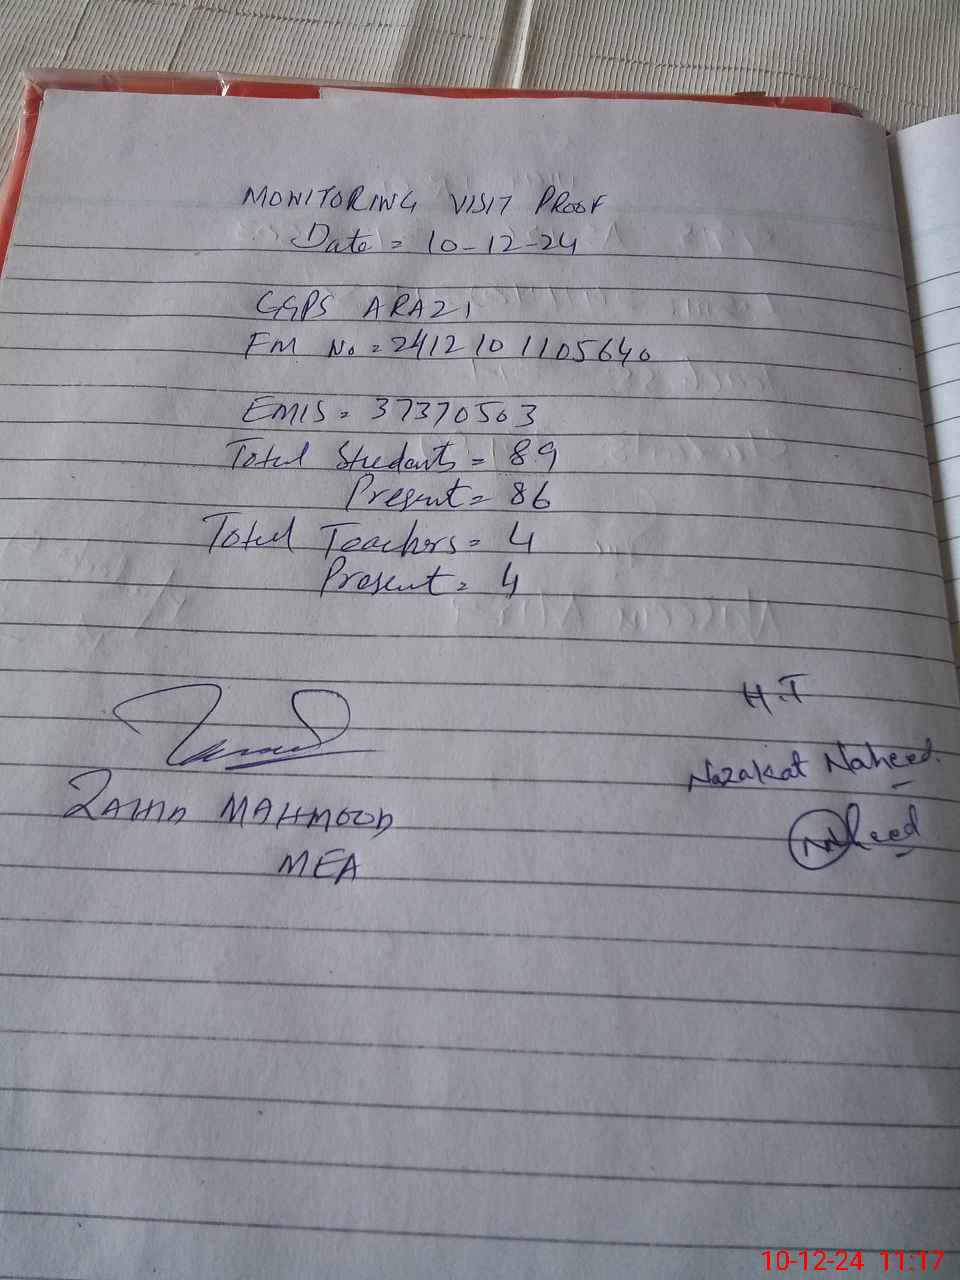 MONITORING VISIT PROOF
Date = 10-12-24
GGPS ARAZI
FM No = 2412101105640
EMIS = 37370503
Total Students = 89
Present = 86
Total Teachers = 4
Present = 4
H.T
Nazakat Naheed.
Naheed
ZAHID MAHMOOD
MEA
10-12-24 11:17